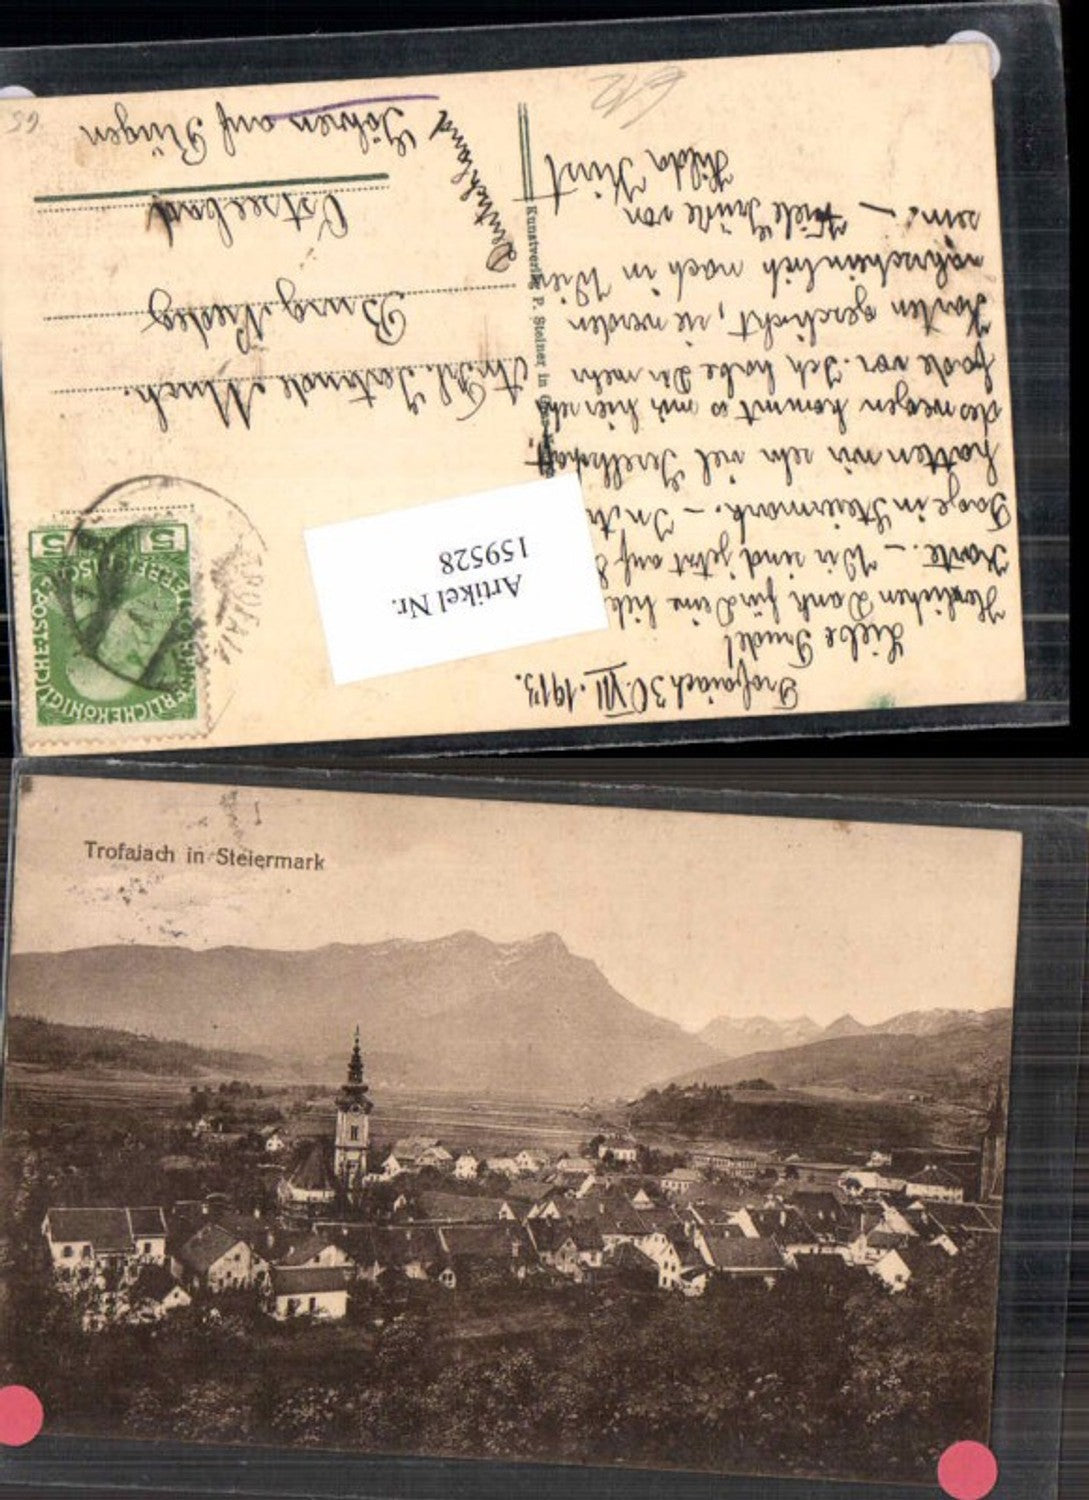 Trofaiach 30. VII. 1913.
Liebe Trudel
Herzlichen Dank für Deine lieb
Karte. - Wir sind jetzt auf 8
Tage in Steiermark. - In
hatten wir sehr viel Gesellschaft
deswegen kommt es mir hier sehr
fade vor. Ich habe Dir mehr
Karten geschickt, sie werden
wahrscheinlich noch in Wien
sein. - Viele Grüße von
Hilda
Kunstverlag P. Steiner in
Artikel Nr.
159528
5 5
KAISERLICHE KÖNIGLICHE ÖSTERREICHISCHE POST
TROFAIA
An Frl. Gertrude Much.
Burg
Ostseebad
Göhren auf Rügen
Deutschland
65
Trofaiach in Steiermark